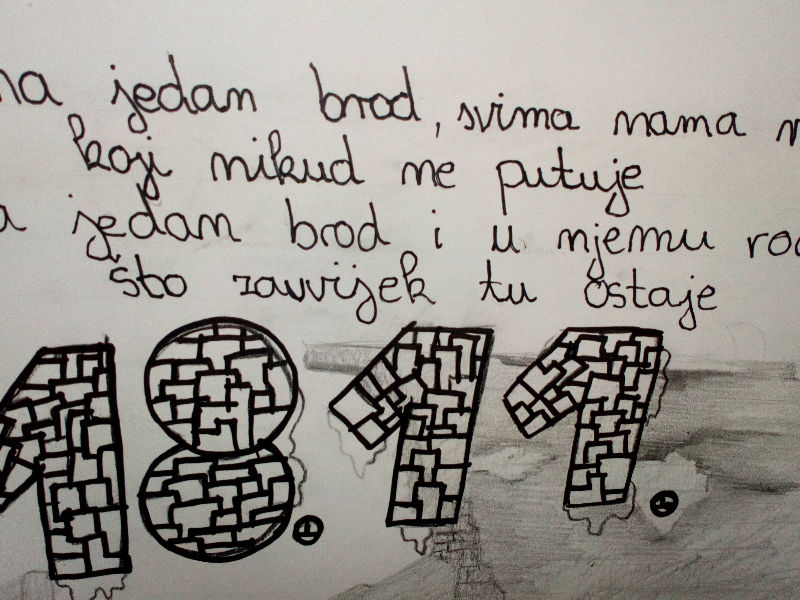 jedan brod, svima nama
koji nikud ne putuje
jedan brod i u njemu
što zauvijek tu ostaje
18.11.